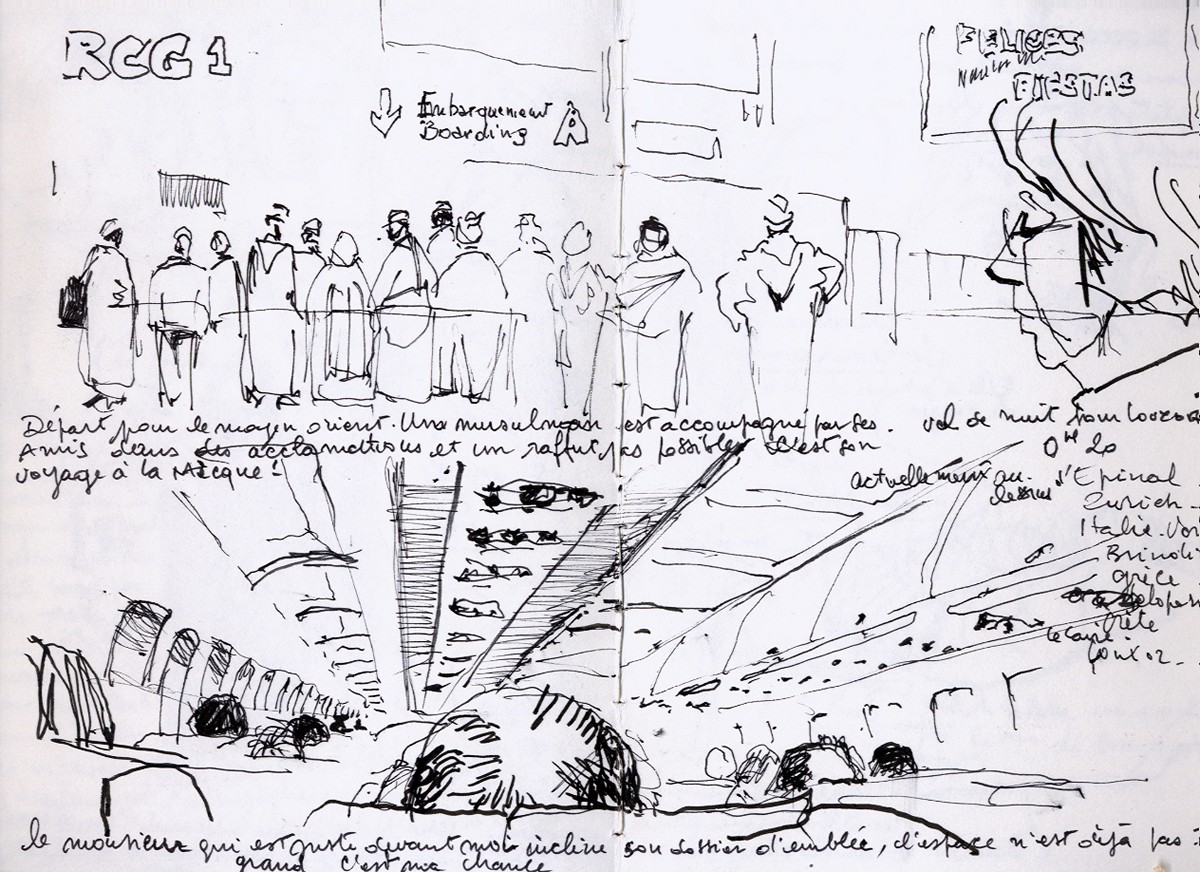 RCG 1
Embarquement
Boarding
A
FELICES
FIESTAS
Départ pour le moyen orient. Un musulman est accompagné par ses
Amis dans des acclamations et un raffut pas possible. C'est son
voyage à la Mècque !
vol de nuit pour
0H 20
actuellement au
dessus d'Epinal
Zurich
Italie
Grèce
Crète
le Caire
le monsieur qui est juste devant moi incline son dossier d'emblée, l'espace n'est déjà pas
grand c'est ma chance